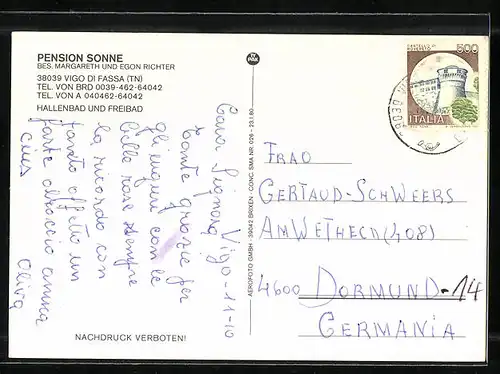 PENSION SONNE
BES. MARGARETH UND EGON RICHTER
38039 VIGO DI FASSA (TN)
TEL. VON BRD 0039-462-64042
TEL. VON A 040462-64042
HALLENBAD UND FREIBAD
Vigo 11-10
Cara Signora
tante grazie per
gli auguri con le
belle rose sempre
la ricordo con
tanto affetto un
forte abraccio
Oliva
NACHDRUCK VERBOTEN!
AEROFOTO GMBH - 39042 BRIXEN - CONC. SMA NR. 026 - 23.1.80
PAK
CASTELLO DI ROVERETO
500
ITALIA
FRAU
GERTAUD-SCHWEERS
AM WETHECK (408)
4600 DORMUND-14
GERMANIA